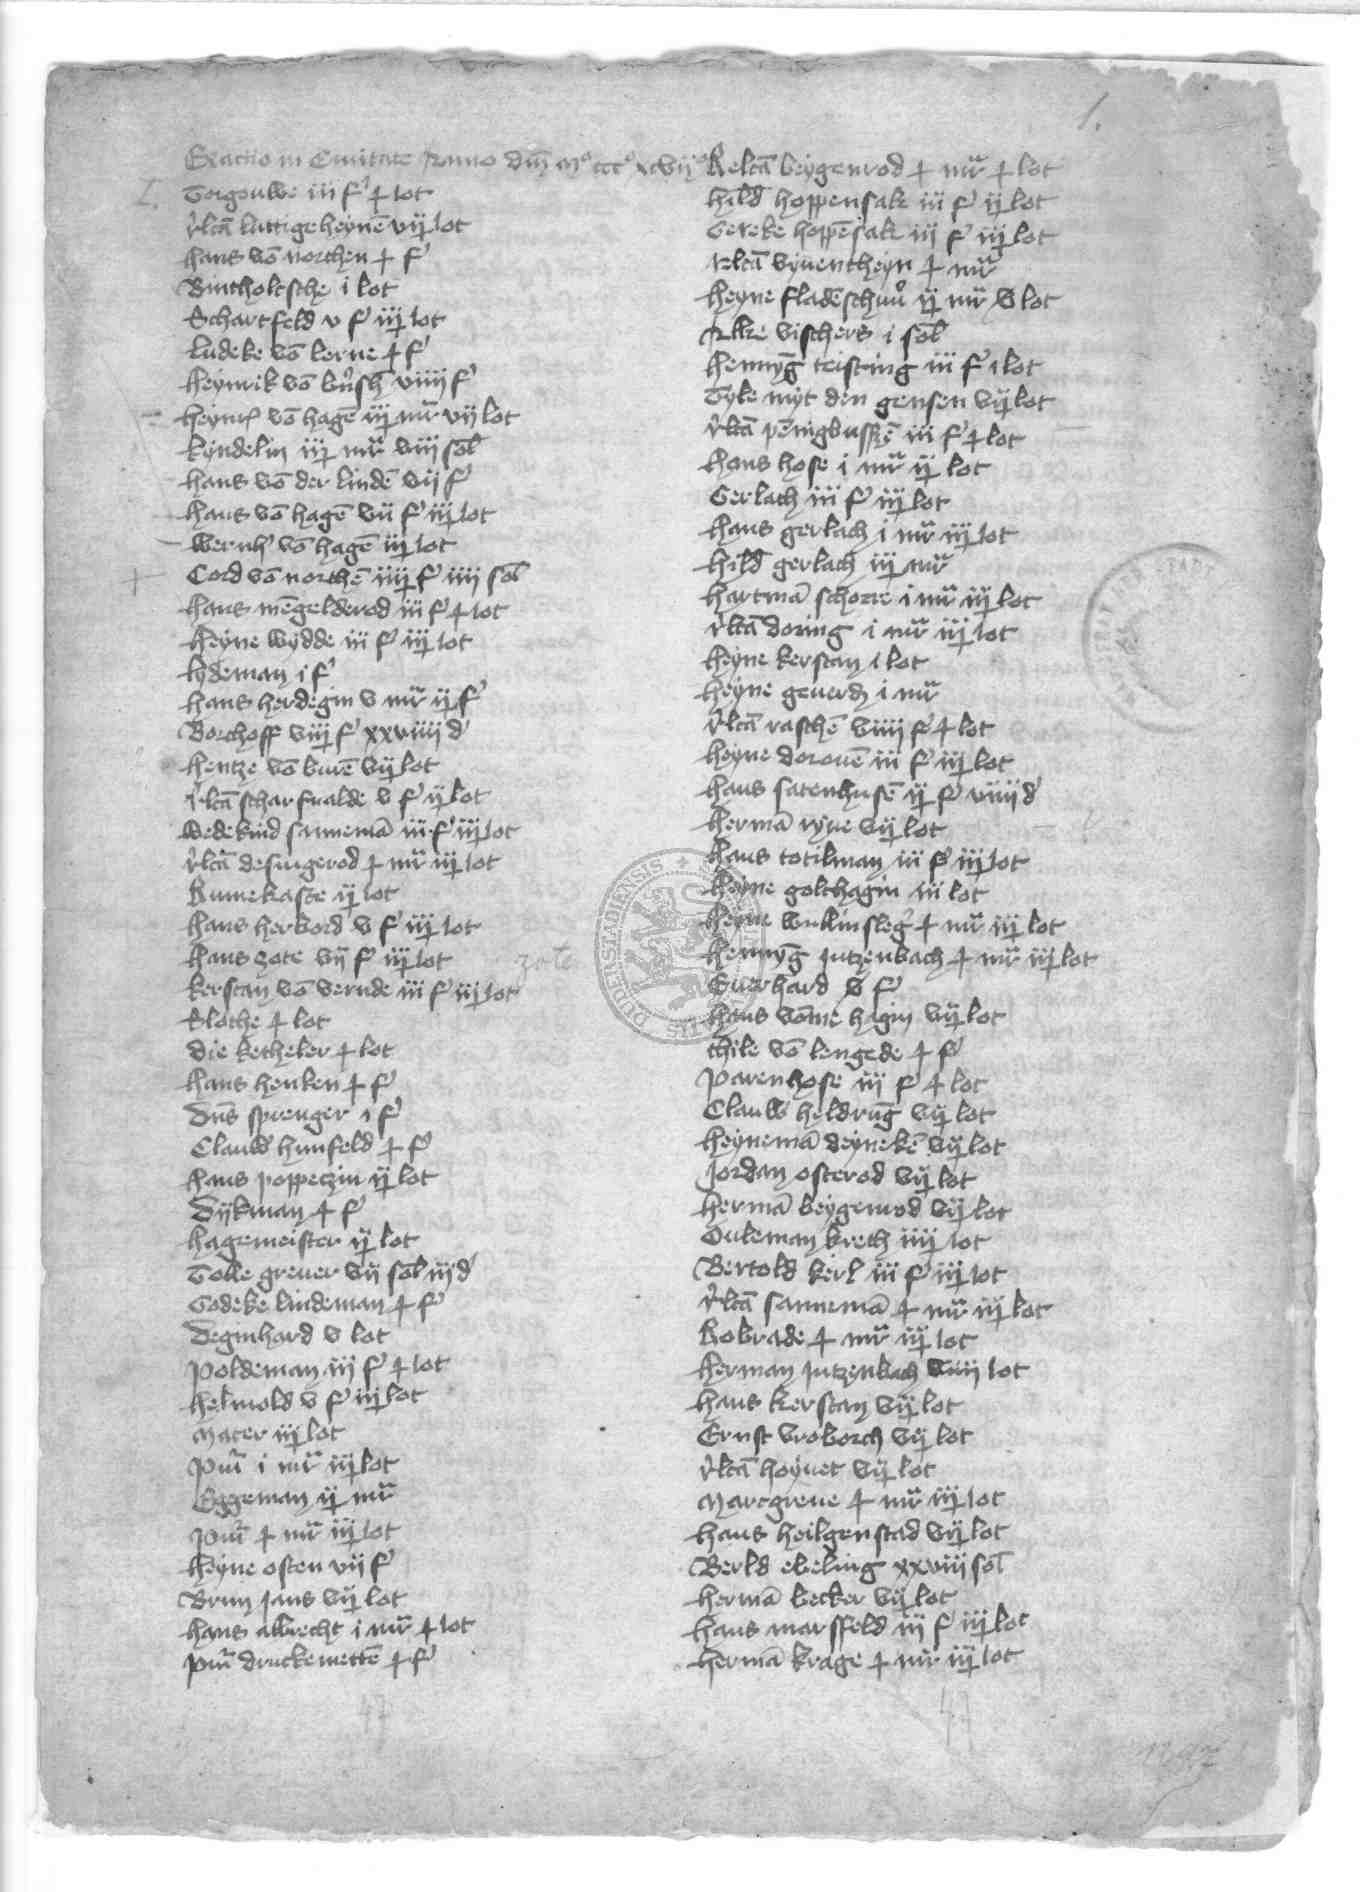 1.
Exactio in Civitate Anno dm̄ mº cccº xcvijº
I.
Torgouwe iii f' ┼ lot
luttigeheynē vij lot
hans vō northen ┼ f'
Buntholtsche i lot
Schartfeld v f' iij lot
Ludeke vō lerne ┼ f'
heynrik vō viiii f'
vō hagē iij mr̄ vij lot
kyndelin iij mr̄ viii sol
hans vō der lindē vij f'
hans vō hagē vii f' iij lot
wernh' vō hagē iij lot
Cord vō northē iiij f' iiii sol
hans mēgelderod iii f' ┼ lot
heyne wydde iii f' iij lot
lydeman i f'
hans herdegin v mr̄ ij f'
Borchoff viij f' xxviiii d'
hentze vō vij lot
scharfvalde v f' ij lot
Wedekind sannemā iii f' iij lot
desingerod ┼ mr̄ iij lot
Rumekaste ij lot
hans herbord v f' iij lot
hans zote vij f' iij lot
zote
kerstan vō vernde iii f' iij lot
Klothe ┼ lot
die ketheler ┼ lot
hans henken ┼ f'
sprenger i f'
Clauw hunfeld ┼ f'
hans poppeczin ij lot
Dijkman ┼ f'
hagemeister ij lot
Tolle grever vij sol iij d'
Godeke lindeman ┼ f'
Deginhard v lot
Poldeman iij f' ┼ lot
helmold v f' iij lot
Mater iij lot
i mr̄ iij lot
Eggeman ij mr̄
┼ mr̄ iij lot
heyne osten vij f'
Brun Jans vij lot
hans albrecht i mr̄ ┼ lot
druckemettē ┼ f'
47
beygenrod ┼ mr̄ ┼ lot
hild hoppensak iii f' ij lot
Gereke hoppēsak iij f' iij lot
vyventheyn ┼ mr̄
heyne fladēschuu ij mr̄ v lot
Ilke vischers i sol
hennyg̅ teistring iii f' i lot
Tyle myt den gensen vij lot
pēnigbussē iii f' ┼ lot
hans hose i mr̄ ij lot
Gerlach iii f' iij lot
hans gerlach i mr̄ iij lot
hild gerlach iij mr̄
hartmā schorre i mr̄ iij lot
doring i mr̄ iij lot
heyne kerstan i lot
heyne i mr̄
raschē viiii f' ┼ lot
heyne dorouē iii f' iij lot
hans satenhusē ij f' viiij d'
hermā ryue vij lot
hans totilman iii f' iij lot
heyne golthagin iii lot
heyne wullinsleg' ┼ mr̄ iij lot
hennyg̅ Jutzenbach ┼ mr̄ iij lot
Everhard v f'
hans vōme hagin vij lot
thile vō lengede ┼ f'
Parenhose iij f' ┼ lot
Clauw heldrūg vij lot
heynemā deynekē vij lot
Jordan osterod vij lot
hermā beygerrod vij lot
Duleman kreth iiij lot
Bertold kerl iii f' iij lot
sannemā ┼ mr̄ iij lot
Bobrade ┼ mr̄ iij lot
herman Jutzenbach viiij lot
hans kerstan vij lot
Ernst vroborch vij lot
hoyuet vij lot
Marcgreue ┼ mr̄ iij lot
hans heilgenstad vij lot
Berld ebeling xxviii sol
hermā becker vij lot
hans marsfeld iij f' iij lot
hermā krage ┼ mr̄ iij lot
47
1397